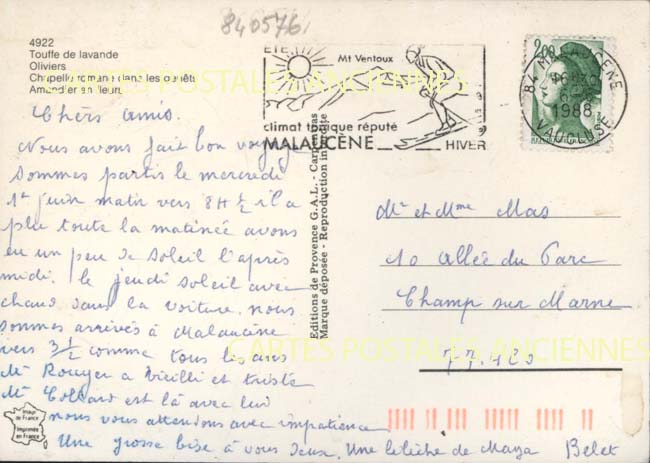 840576
4922
Touffe de lavande
Oliviers
Chapelle romane dans les genêts
Amandier en fleurs
ETE
Mt Ventoux
climat tonique réputé
MALAUCÈNE HIVER
2,00
84 MALAUCENE
1988
VAUCLUSE
Chèrs amis.
Nous avons fait bon voyage
sommes partis le mercredi
1er juin matin vers 8H ½ il a
plu toute la matinée avons
eu un peu de soleil l'après
midi. le jeudi soleil avec
chaud dans la voiture, nous
sommes arrivés à Malaucène
vers 3 ½ comme tous les ans
Mr Rouyer a vieilli et triste
Mr Collard est là avec lui
nous vous attendons avec impatience
Une grosse bise à vous deux. Une lichе de Maya Belet
Editions de Provence G.A.L. - Carpentras
Marque déposée - Reproduction interdite
Mr et Mme Mas
10 Allée du Parc
Champ sur Marne
77.420
Image de France
Imprimée en France
CARTES POSTALES ANCIENNES
CARTES POSTALES ANCIENNES